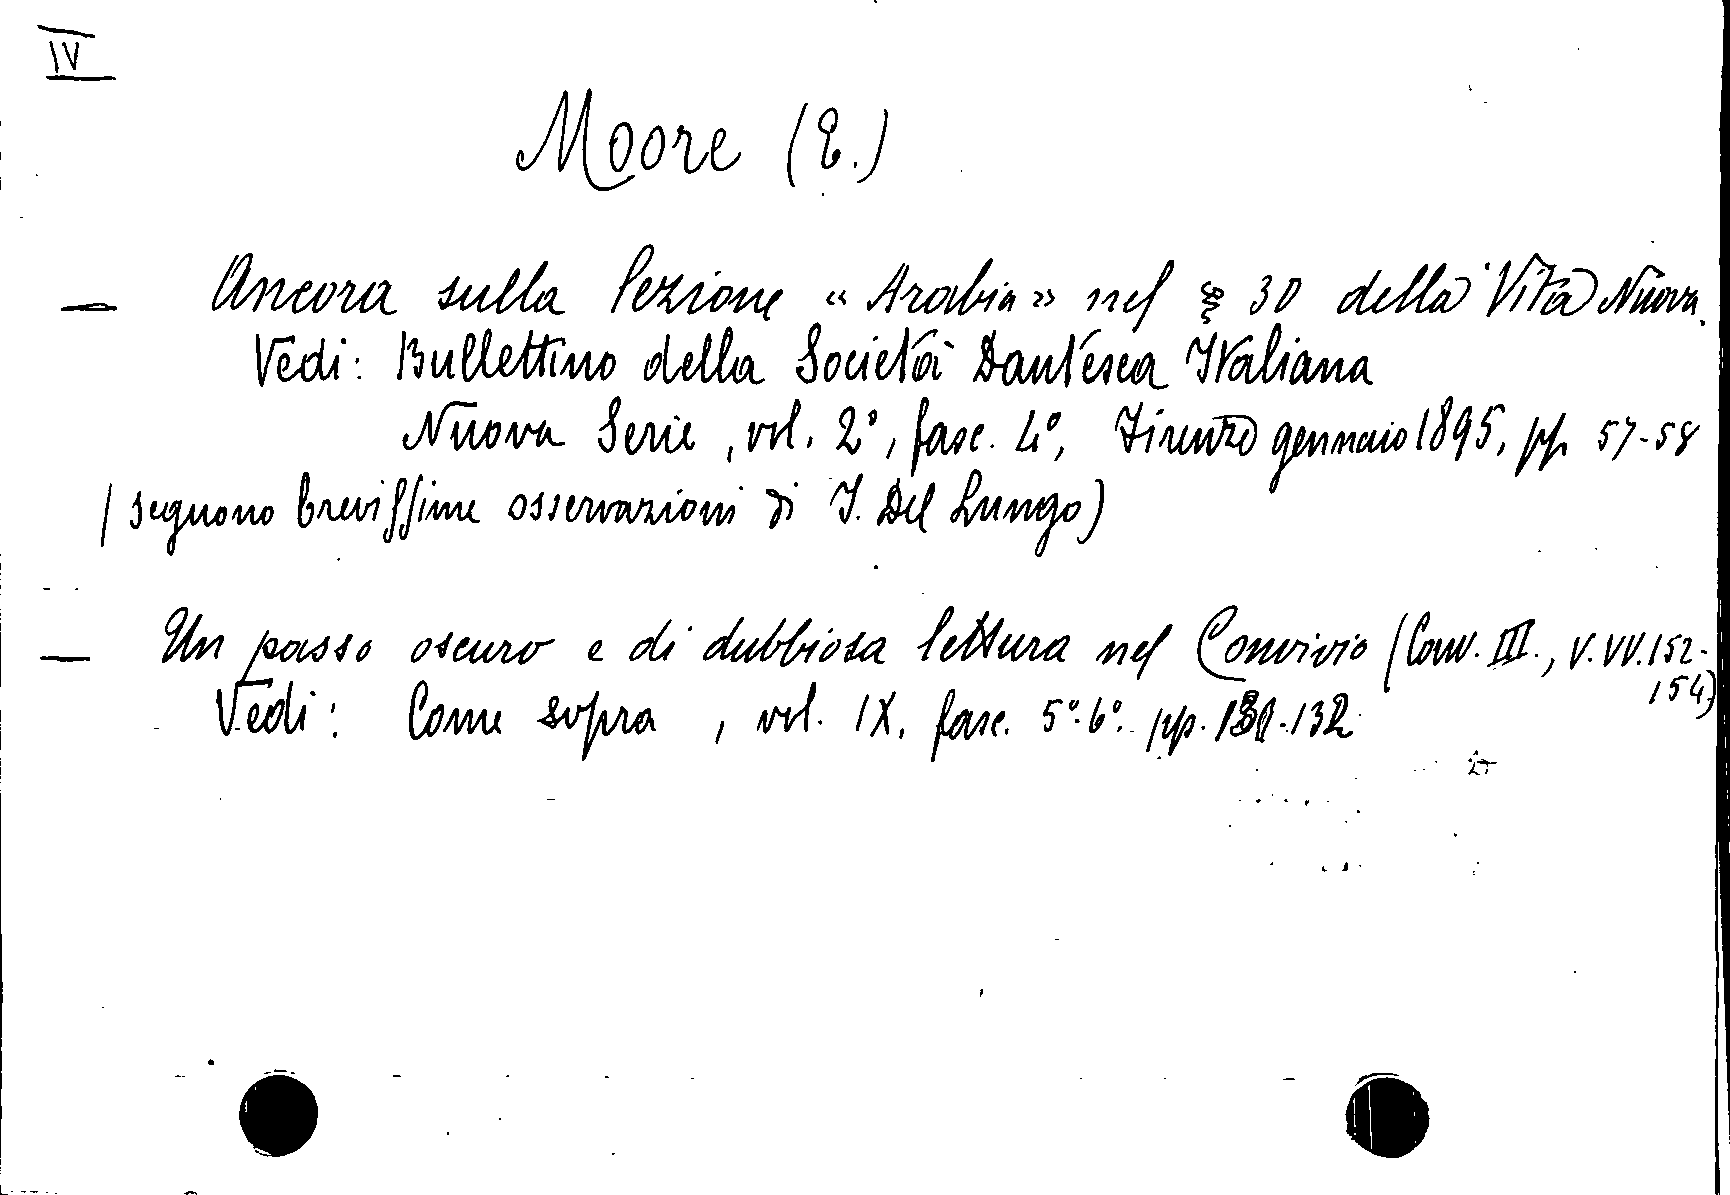 IV
Moore (E.)
— Ancora sulla lezione « Arabia » nel § 30 della Vita Nuova.
Vedi: Bullettino della Società Dantesca Italiana
Nuova Serie, vol. 2°, fasc. 4°, Firenze gennaio 1895, pp. 57-58
(seguono brevissime osservazioni di I. Del Lungo)
— Un passo oscuro e di dubbiosa lettura nel Convivio (Conv. III., V. vv. 152-
154)
Vedi: Come sopra, vol. IX, fasc. 5°-6°. pp. 131-132